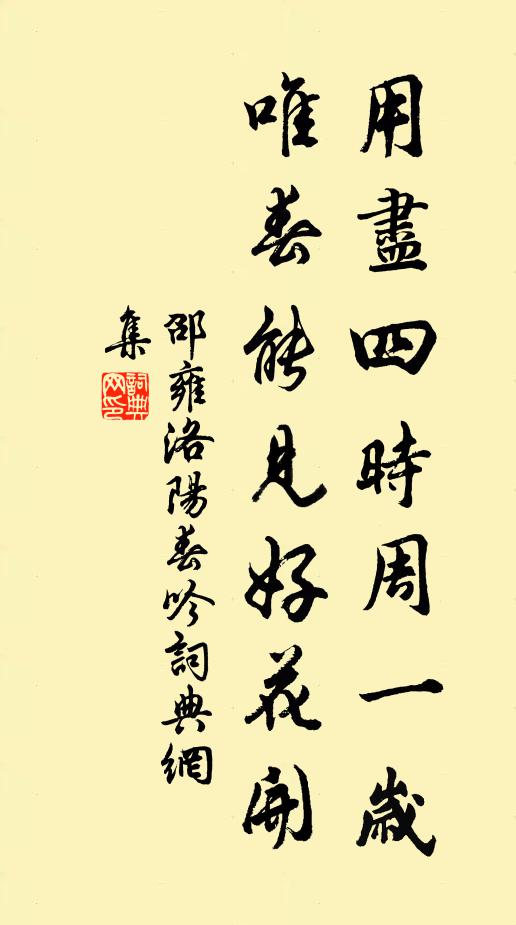 用盡四時周一歲
唯春能見好花開
邵雍洛陽春吟詞典網
集
詞典
网印